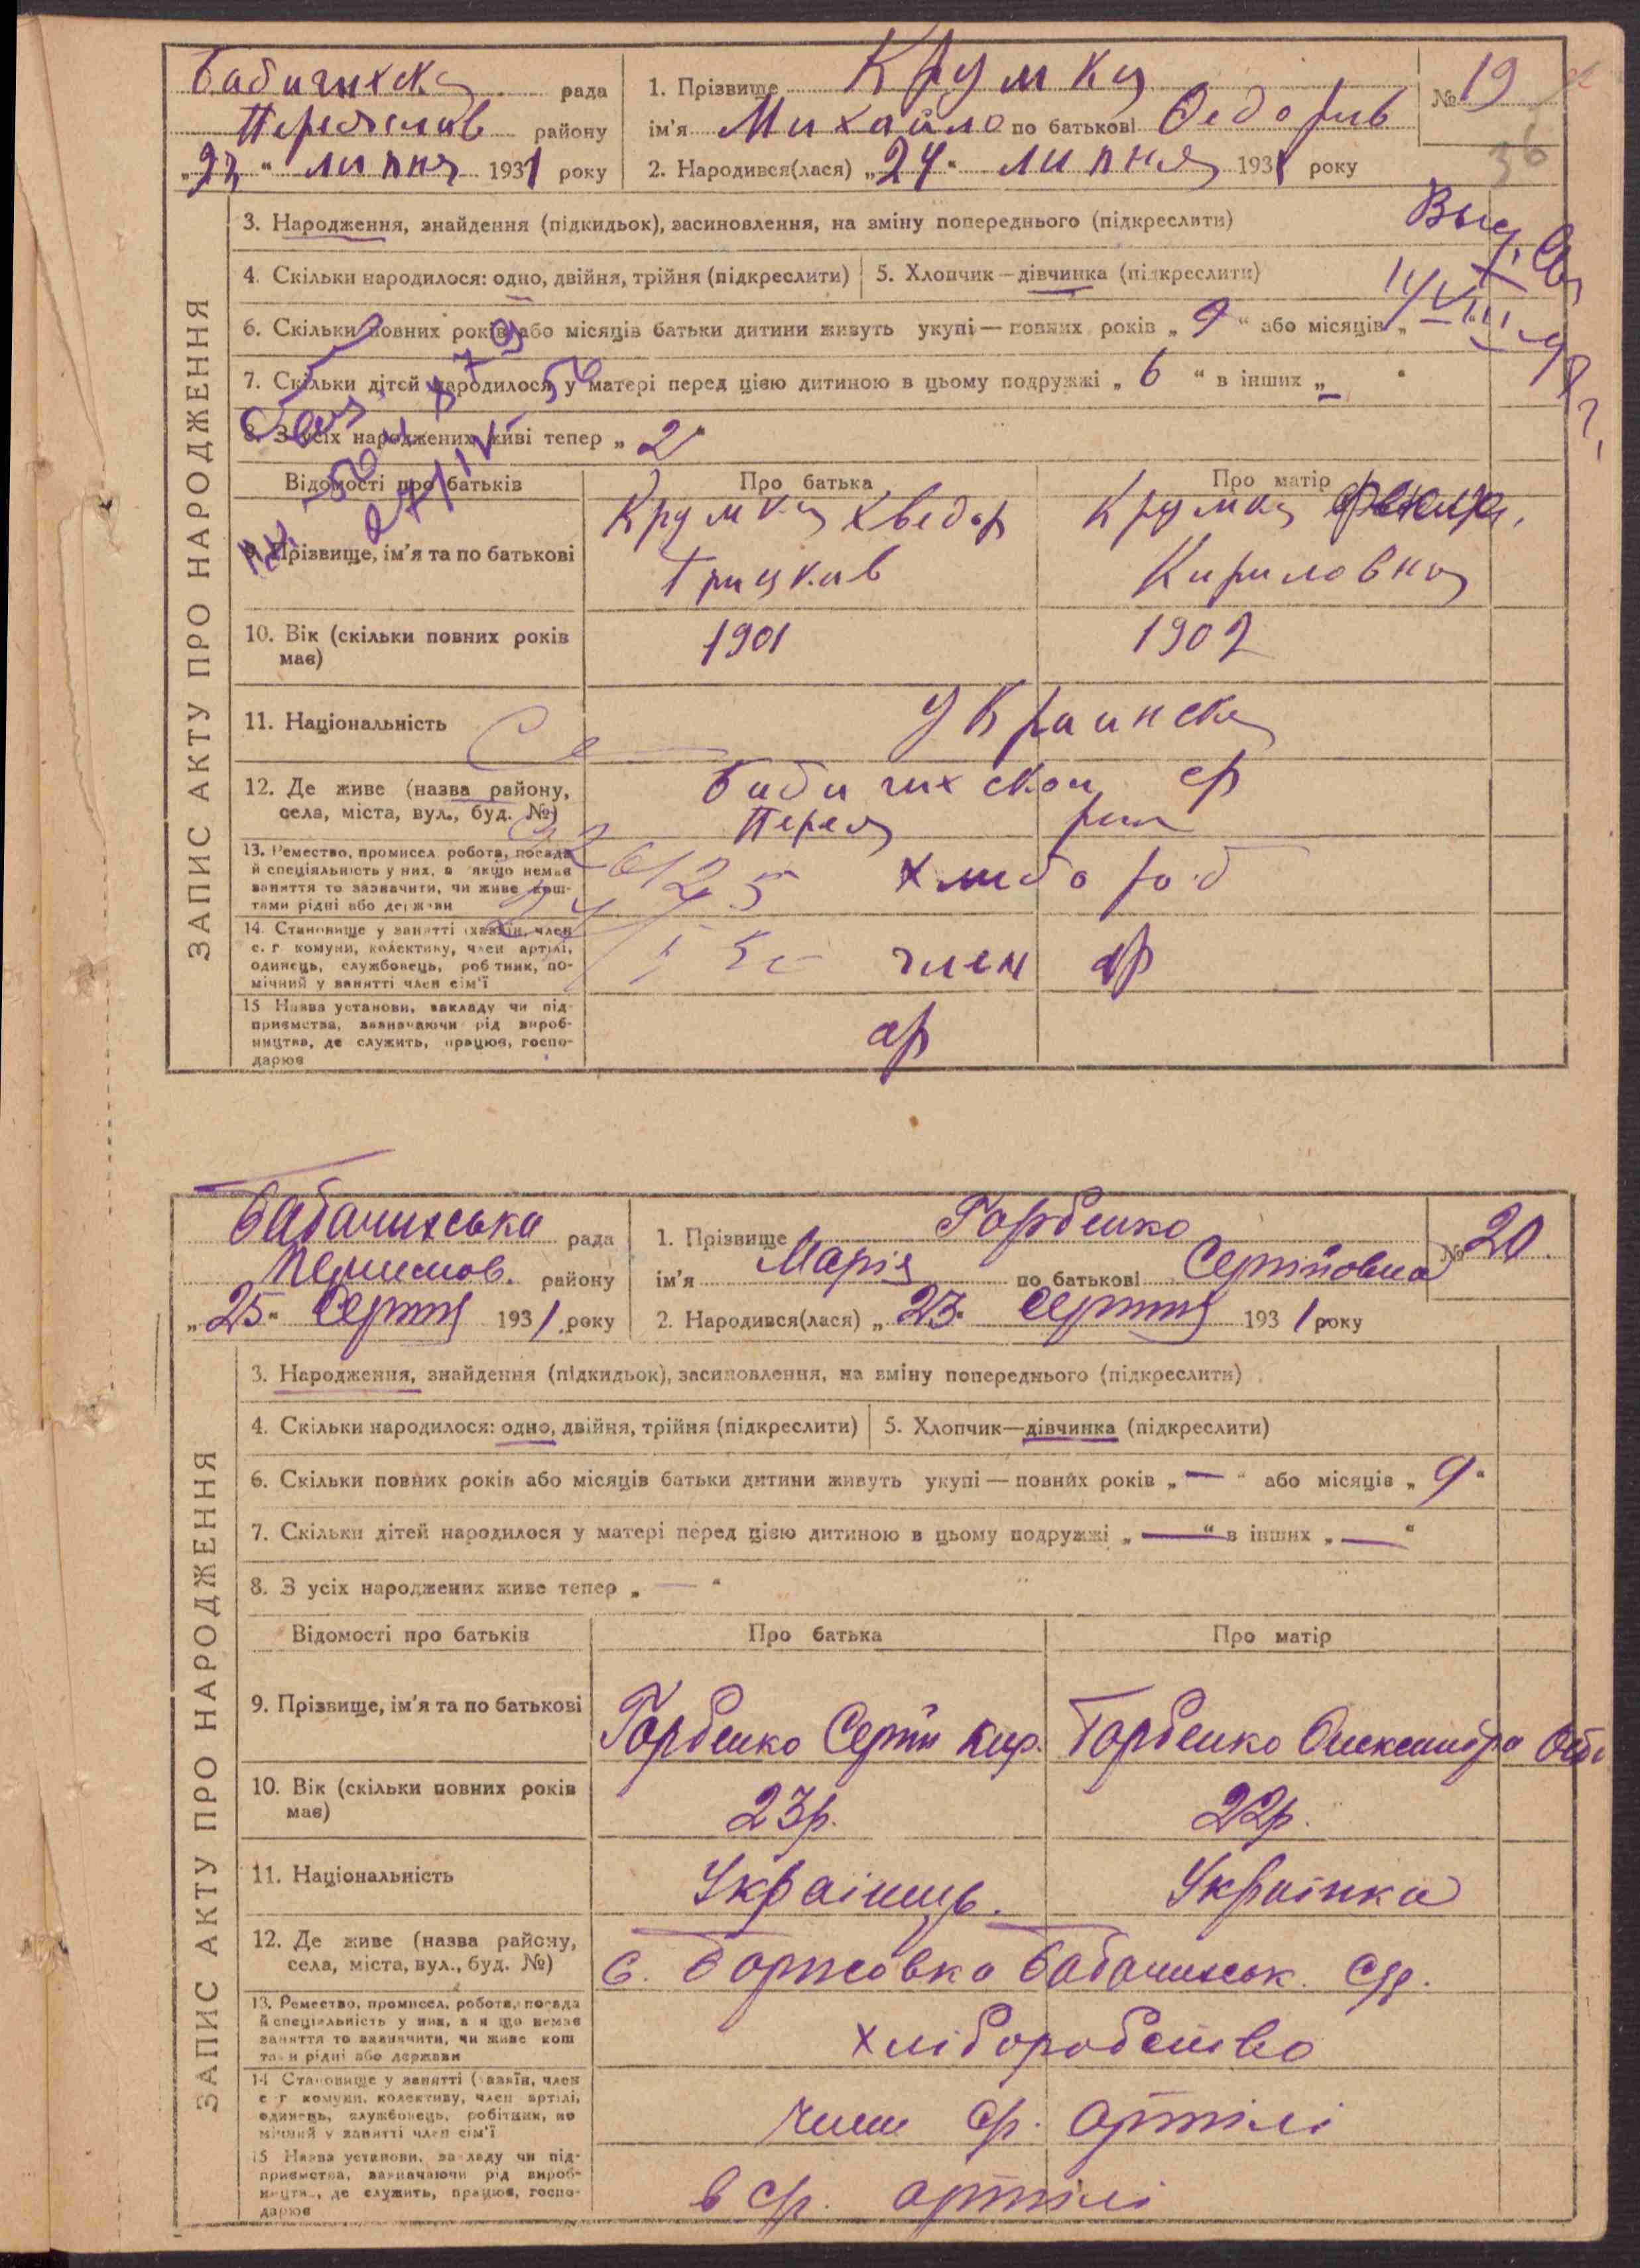 рада
району
липня 1931 року
1. Прізвище Крумка
ім'я Михайло по батькові Федорів
2. Народився(лася) „24“ липня 1931 року
№ 19
36
ЗАПИС АКТУ ПРО НАРОДЖЕННЯ
3. Народження, знайдення (підкидьок), засиновлення, на зміну попереднього (підкреслити)
4. Скільки народилося: одно, двійня, трійня (підкреслити)
5. Хлопчик—дівчинка (підкреслити)
6. Скільки повних років або місяців батьки дитини живуть укупі — повних років „9“ або місяців „
7. Скільки дітей народилося у матері перед цією дитиною в цьому подружжі „6“ в інших „–“
8. З усіх народжених живі тепер „2“
Відомості про батьків
Про батька
Про матір
9. Прізвище, ім'я та по батькові
Крумка Хведор
Крумка
Кириловна
10. Вік (скільки повних років має)
1901
1902
11. Національність
Украинска
12. Де живе (назва району,
села, міста, вул., буд. №)
13. Ремество, промисел, робота, посада
й спеціяльність у них, а якщо немає
заняття то зазначити, чи живе кош-
тами рідні або держави
хлибороб
14. Становище у занятті (хазяїн, член
с. г. комуни, колективу, член артілі,
одинець, службовець, робітник, по-
мічний у занятті член сім'ї
член ар
15. Назва установи, закладу чи під-
приємства, зазначаючи рід вироб-
ництва, де служить, працює, госпо-
дарює
ар
Бабачихська рада
району
„25“ Серпня 1931 року
1. Прізвище Горбенко
ім'я Марія по батькові Сергіївна
2. Народився(лася) „23“ Серпня 1931 року
№ 20.
ЗАПИС АКТУ ПРО НАРОДЖЕННЯ
3. Народження, знайдення (підкидьок), засиновлення, на зміну попереднього (підкреслити)
4. Скільки народилося: одно, двійня, трійня (підкреслити)
5. Хлопчик—дівчинка (підкреслити)
6. Скільки повних років або місяців батьки дитини живуть укупі — повних років „—“ або місяців „9“
7. Скільки дітей народилося у матері перед цією дитиною в цьому подружжі „—“ в інших „—“
8. З усіх народжених живе тепер „—“
Відомості про батьків
Про батька
Про матір
9. Прізвище, ім'я та по батькові
Горбенко Сергій Кир.
Горбенко Олександра
10. Вік (скільки повних років
має)
23р.
22р.
11. Національність
Українець.
Українка
12. Де живе (назва району,
села, міста, вул., буд. №)
с. Борисовка Бабачихськ. с/р.
13. Ремество, промисел, робота, посада
й спеціяльність у них, а якщо немає
заняття то зазначити, чи живе кош
тами рідні або держави
хліборобство
14. Становище у занятті (хазяїн, член
с. г. комуни, колективу, член артілі,
одинець, службовець, робітник, по
мічний у занятті член сім'ї
член с/г. артілі
15. Назва установи, закладу чи під-
приємства, зазначаючи рід вироб-
ництва, де служить, працює, госпо-
дарює
в с/г. артілі